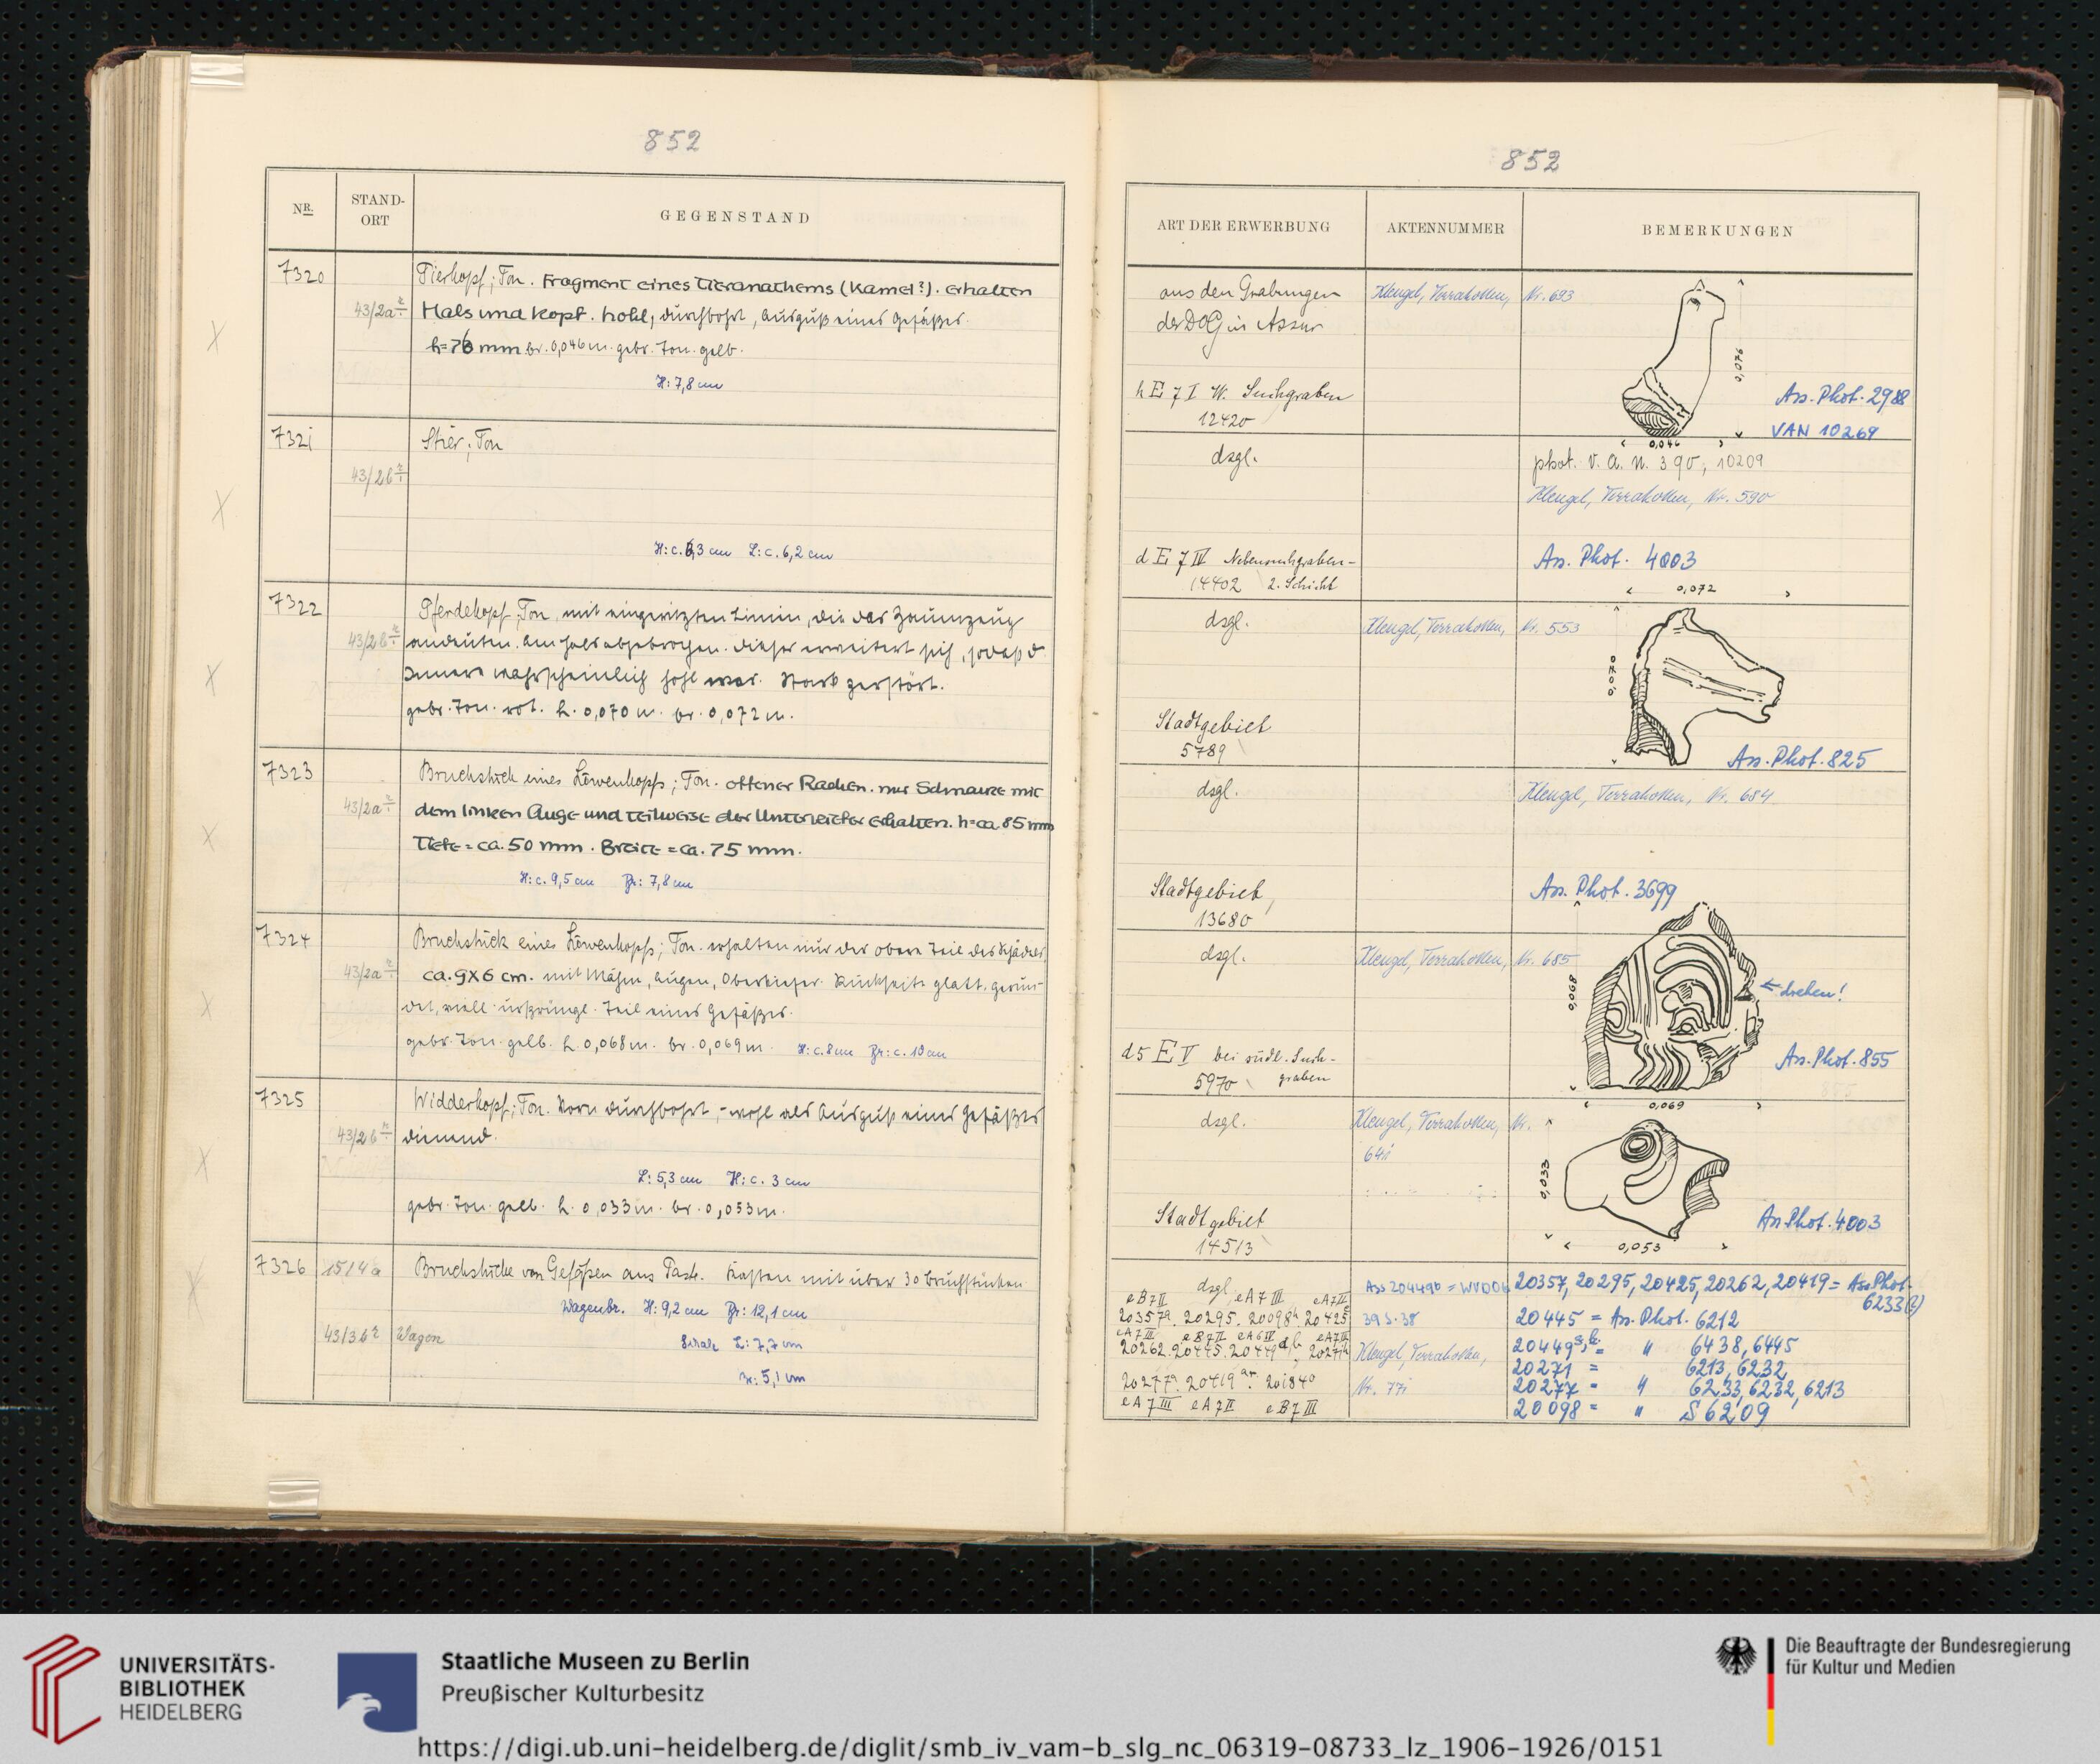 852
NR.
STAND-
ORT
GEGENSTAND
7320
43/2a
Tierkopf; Ton. Fragment eines Tieranathems (Kamel?). erhalten
Hals und Kopf. hohl, durchbohrt, Ausguß eines Gefäßes.
h=76 mm br. 0,046 m. gebr. Ton. gelb.
H: 7,8 cm
7321
43/2b
Stier; Ton
H: c. 6,3 cm L: c. 6,2 cm
7322
43/2b
Pferdekopf, Ton, mit eingeritzten Linien, die das Zaumzeug
andeuten. Am Hals abgebrochen. Dieser erweitert sich, sodaß d.
Innere wahrscheinlich hohl war. Stark zerstört.
gebr. Ton. rot. h. 0,070 m. br. 0,072 m.
7323
43/2a
Bruchstück eines Löwenkopfs; Ton. offener Rachen. nur Schnauze mit
dem linken Auge und teilweise der Unterkiefer erhalten. h=ca. 85 mm
Tiefe = ca. 50 mm. Breite = ca. 75 mm.
H: c. 9,5 cm Br: 7,8 cm
7324
43/2a
Bruchstück eines Löwenkopfs; Ton. erhalten nur der obere Teil des Schädels,
ca. 9x6 cm. mit Mähne, Augen, Oberkiefer. Rückseite glatt, gerun-
det, viell. ursprüngl. Teil eines Gefäßes.
gebr. Ton. gelb. h. 0,068 m. br. 0,069 m. H: c. 8 cm Br: c. 10 cm
7325
43/2b
Widderkopf; Ton. Vorn durchbohrt, - wohl als Ausguß eines Gefäßes
dienend.
L: 5,3 cm H: c. 3 cm
gebr. Ton. gelb. h. 0,033 m. br. 0,053 m.
7326
15/4a
Bruchstücke von Gefäßen aus Paste. Kasten mit über 30 Bruchstücken
Wagenbr. H: 9,2 cm Br: 12,1 cm
43/3b Wagen
L: 7,7 cm
5,1 cm
852
ART DER ERWERBUNG
AKTENNUMMER
BEMERKUNGEN
aus den Grabungen
der DOG in Assur
Klengel, Terrakotten, Nr. 693
h E 7 I W. Suchgraben
12420
0,076
0,046
Ass. Phot. 2988
VAN 10269
dsgl.
phot. V. A. N. 390, 10209
Klengel, Terrakotten, Nr. 590
d E 7 IV Nebensuchgraben-
14402 2. Schicht
Ass. Phot. 4003
dsgl.
Klengel, Terrakotten, Nr. 553
0,072
0,070
Stadtgebiet
5789
Ass. Phot. 825
dsgl.
Klengel, Terrakotten, Nr. 684
Stadtgebiet
13680
Ass. Phot. 3699
dsgl.
Klengel, Terrakotten, Nr. 685
0,068
← drehen!
d5 E V bei südl. Such-
5970 graben
Ass. Phot. 855
0,069
dsgl.
Klengel, Terrakotten, Nr.
641
0,033
Stadtgebiet
14513
Ass Phot. 4003
0,053
dsgl.
eB7II eA7III eA7II
20357 20295. 20098 20425
eA7III eB7II eA6IV eA7III
20262. 20445. 20449 20271
20277. 20419 20184
eA7III eA7II eB7III
Ass 20449b = WVDOG
39 S. 38
Klengel, Terrakotten,
Nr. 771
20357, 20295, 20425, 20262, 20419 = Ass Phot.
6233(?)
20445 = Ass. Phot. 6212
20449a,b = " 6438, 6445
20271 = 6213, 6232
20277 = " 6233, 6232, 6213
20098 = " S 6209
UNIVERSITÄTS-
BIBLIOTHEK
HEIDELBERG
Staatliche Museen zu Berlin
Preußischer Kulturbesitz
Die Beauftragte der Bundesregierung
für Kultur und Medien
https://digi.ub.uni-heidelberg.de/diglit/smb_iv_vam-b_slg_nc_06319-08733_lz_1906-1926/0151